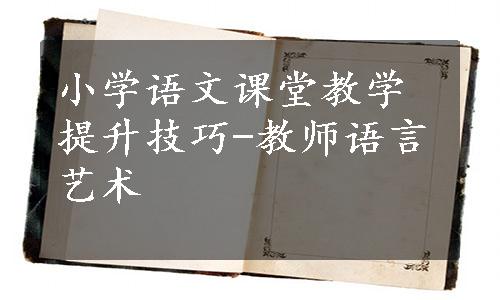 小学语文课堂教学
提升技巧-教师语言
艺术